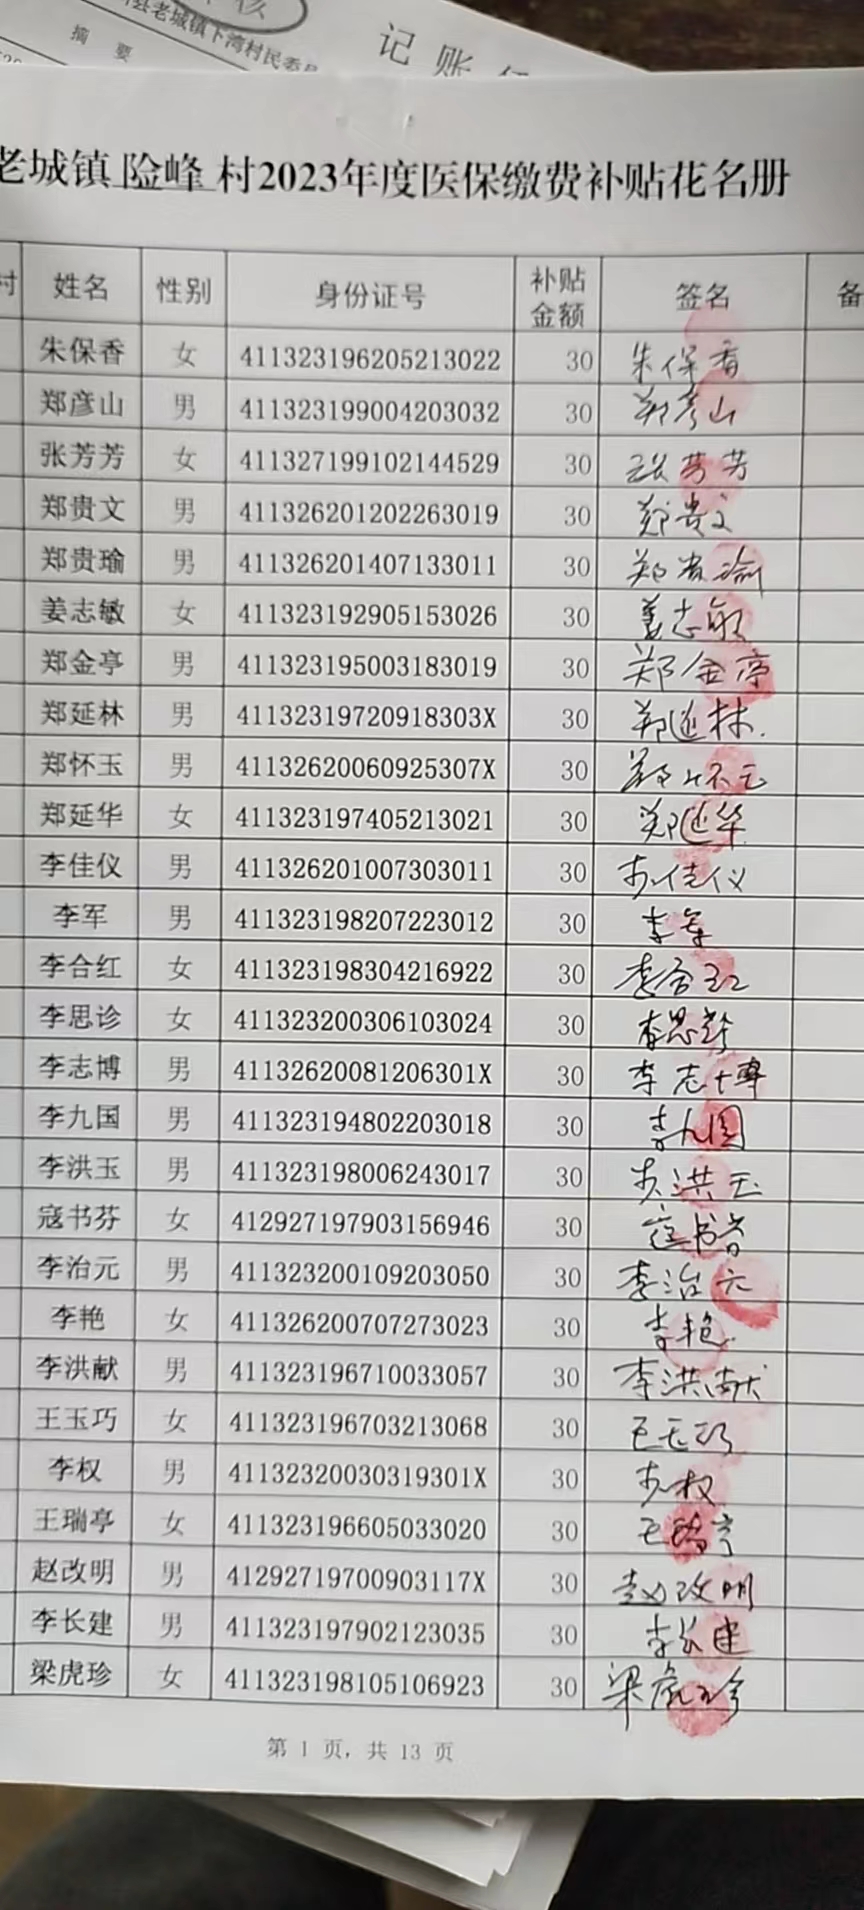 县老城镇下湾村民委员
摘 要
记 账
老城镇 险峰 村2023年度医保缴费补贴花名册
村 姓名 性别 身份证号 补贴金额 签名 备
朱保香 女 411323196205213022 30 朱保香
郑彦山 男 411323199004203032 30 郑彦山
张芳芳 女 411327199102144529 30 张芳芳
郑贵文 男 411326201202263019 30 郑贵文
郑贵瑜 男 411326201407133011 30 郑贵瑜
姜志敏 女 411323192905153026 30 姜志敏
郑金亭 男 411323195003183019 30 郑金亭
郑延林 男 41132319720918303X 30 郑延林
郑怀玉 男 41132620060925307X 30 郑怀玉
郑延华 女 411323197405213021 30 郑延华
李佳仪 男 411326201007303011 30 李佳仪
李军 男 411323198207223012 30 李军
李合红 女 411323198304216922 30 李合红
李思诊 女 411323200306103024 30 李思诊
李志博 男 41132620081206301X 30 李志博
李九国 男 411323194802203018 30 李九国
李洪玉 男 411323198006243017 30 李洪玉
寇书芬 女 412927197903156946 30 寇书芬
李治元 男 411323200109203050 30 李治元
李艳 女 411326200707273023 30 李艳
李洪献 男 411323196710033057 30 李洪献
王玉巧 女 411323196703213068 30 王玉巧
李权 男 41132320030319301X 30 李权
王瑞亭 女 411323196605033020 30 王瑞亭
赵改明 男 41292719700903117X 30 赵改明
李长建 男 411323197902123035 30 李长建
梁虎珍 女 411323198105106923 30 梁虎珍
第 1 页, 共 13 页